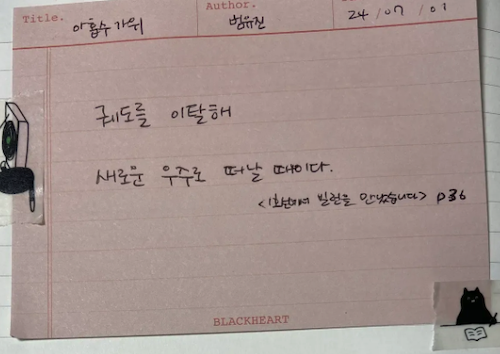 Title. 아홉수 가위
Author. 범유진
24 / 07 / 01
궤도를 이탈해
새로운 우주로 떠날 때이다.
<1호선에서 빌런을 만났습니다> p36
BLACKHEART